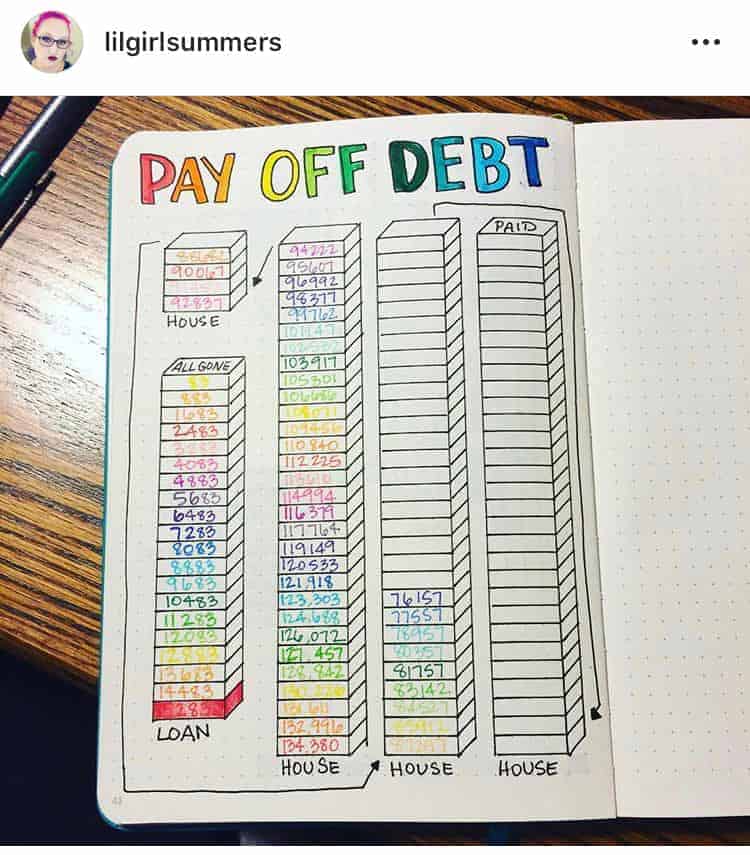 lilgirlsummers
PAY OFF DEBT
88682
90067
92837
HOUSE
ALL GONE
83
883
1683
2483
3283
4083
4883
5683
6483
7283
8083
8883
9683
10483
11283
12083
12883
13683
14483
HOUSE
LOAN
94222
95607
96992
98377
99762
101147
102532
103917
105301
106686
108071
109456
110840
112225
113610
114994
116379
117764
119149
120533
121,918
123,303
124,688
126,072
127,457
128,842
130,226
131,611
132,996
134,380
HOUSE
76157
77557
78957
80357
81757
83142
84527
85912
87297
HOUSE
PAID
HOUSE